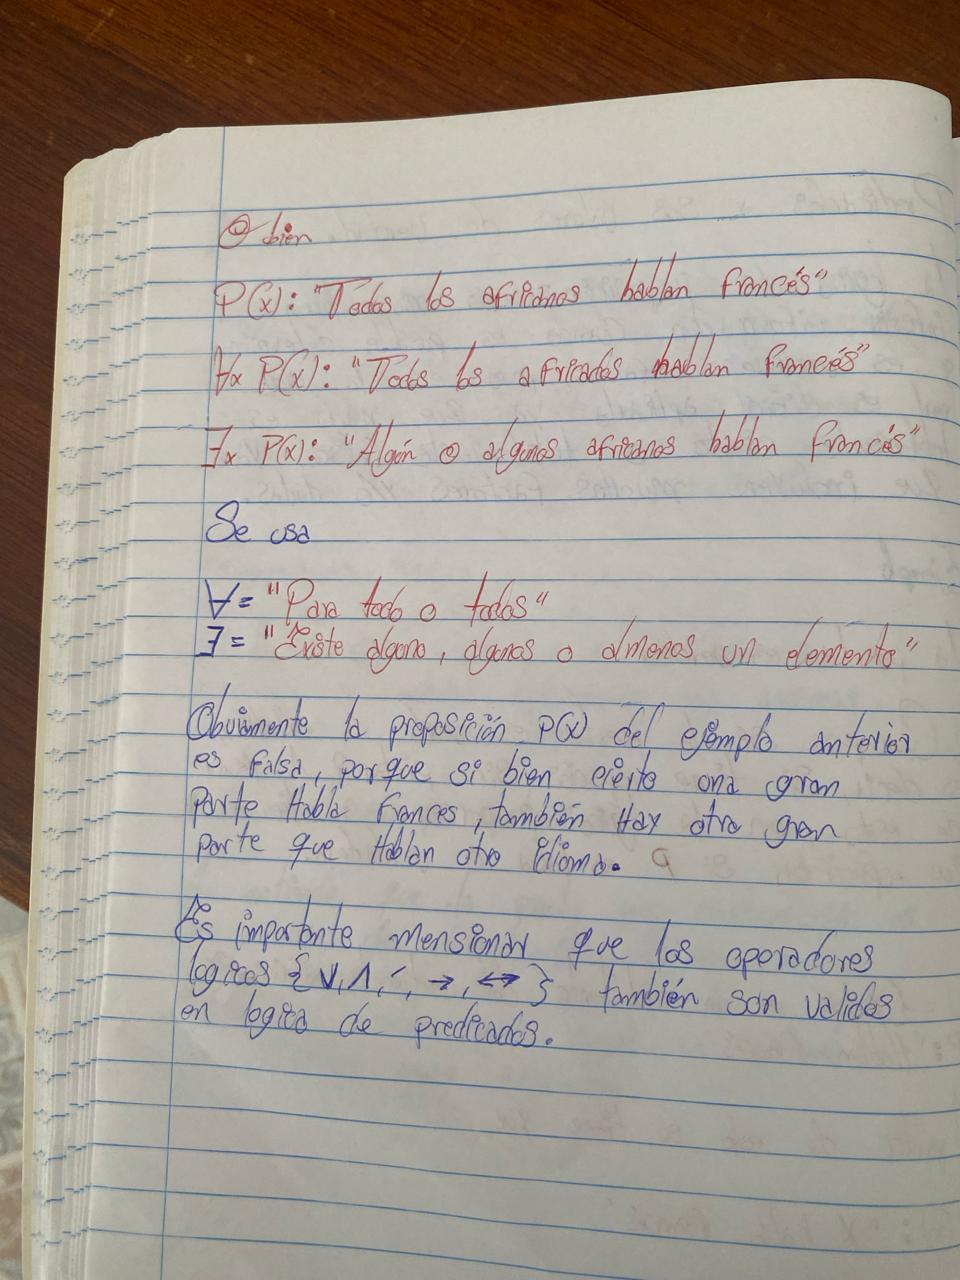 O bien
P(x): "Todos los africanos hablan francés"
∀x P(x): "Todos los africados hablan francés"
∃x P(x): "Algún o algunos africanos hablan francés"
Se usa
∀= "Para todo o todos"
∃= "Existe alguno, algunos o almenos un elemento"
Obviamente la proposición P(x) del ejemplo anterior
es falsa, porque si bien cierto una gran
parte Habla Frances, también Hay otra gran
parte que Hablan otro idioma.
Es importante mensionar que los operadores
logicos {∨, ∧, ', →, ↔} también son validos
en logica de predicados.